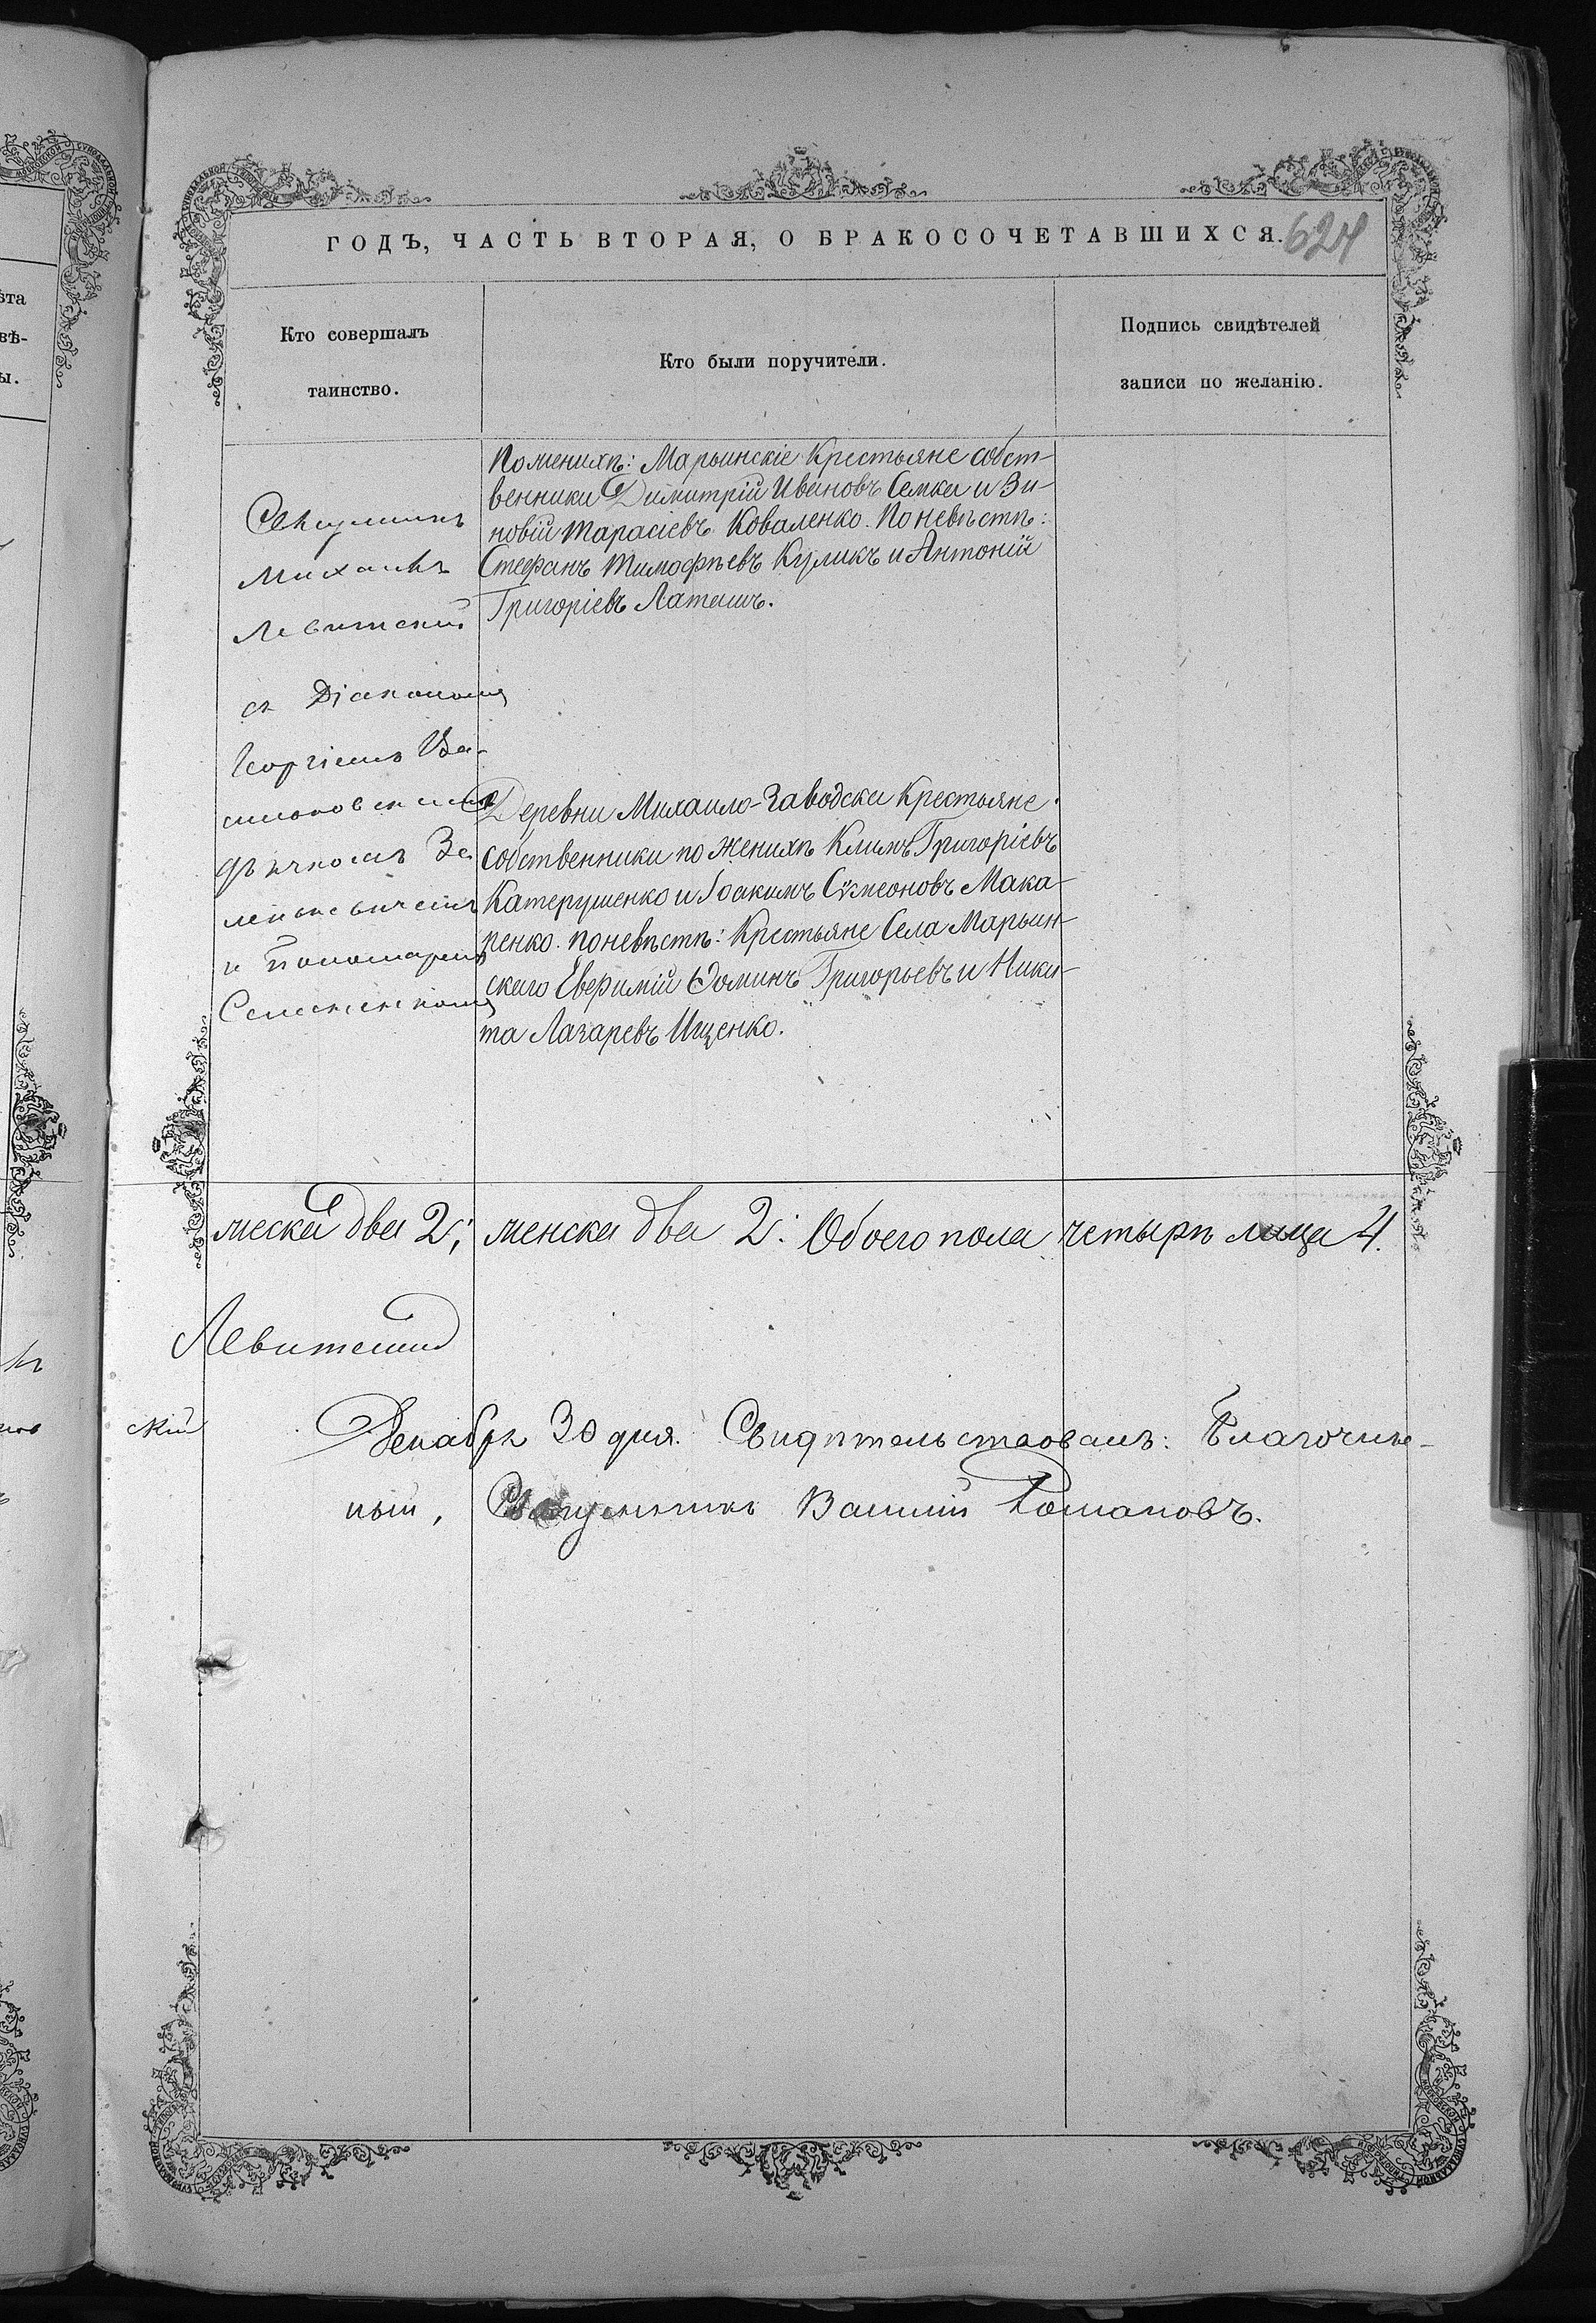 ГОДЪ, ЧАСТЬ ВТОРАЯ, О БРАКОСОЧЕТАВШИХСЯ.
624
Кто совершалъ
таинство.
Кто были поручители.
Подпись свидѣтелей
записи по желанію.
Священникъ
Михаилъ
Левитскій
съ Діакономъ
Георгіемъ Ва-
дьячкомъ Зе-
и Пономаремъ
По женихѣ: Марьинскіе Крестьяне собст-
венники Димитрій Ивановъ Семка и Зи-
новій Тарасіевъ Коваленко. По невѣстѣ:
Стефанъ Тимофѣевъ Куликъ и Антоній
Григоріевъ Латышъ.
Деревни Михаило-Заводска Крестьяне
собственники по женихѣ Климъ Григоріевъ
Катерушенко и Іоакимъ Сѵмеоновъ Мака-
ренко. по невѣстѣ: Крестьяне Села Марьин-
скаго Евфимій Ѳоминъ Григорьевъ и Ники-
та Лазаревъ Ищенко.
мужеска два 2; женска два 2: Обоего пола четырѣ лица 4.
Левитскій
скій
Декабря 30 дня. Свидѣтельствовалъ: Благочин-
ный, Священникъ Василій Романовъ.